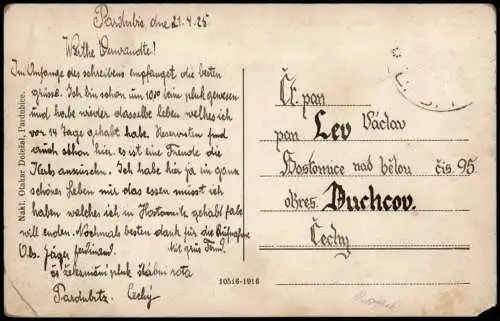 Pardubic, dne 21.4.25
Werthe Verwandte!
Im Anfange des schreibens empfanget die besten
grüsse. Ich bin schon um beim pluk gewesen
und habe wieder dasselbe leben welches ich
vor 14 Tage gehabt habe. Reservisten sind
auch schon hier, es ist eine Freude die
Kerls ansschen. Ich habe hir ja ein ganz
schönes Leben nur das essen musst ich
haben welches ich in Hostomitz gehabt habe
will enden. Nochmals besten dank für die Aufnahme
Obs. Jäger ferdinand. Mit grüs Ferd.
pluk štábní rota
Pardubitz Čechy
Nakl. Otakar Doležal, Pardubice.
10516-1916
Ct. pan
pan Lev Václav
Hostomice nad bělou čís 95
okres Duchcov.
Čechy